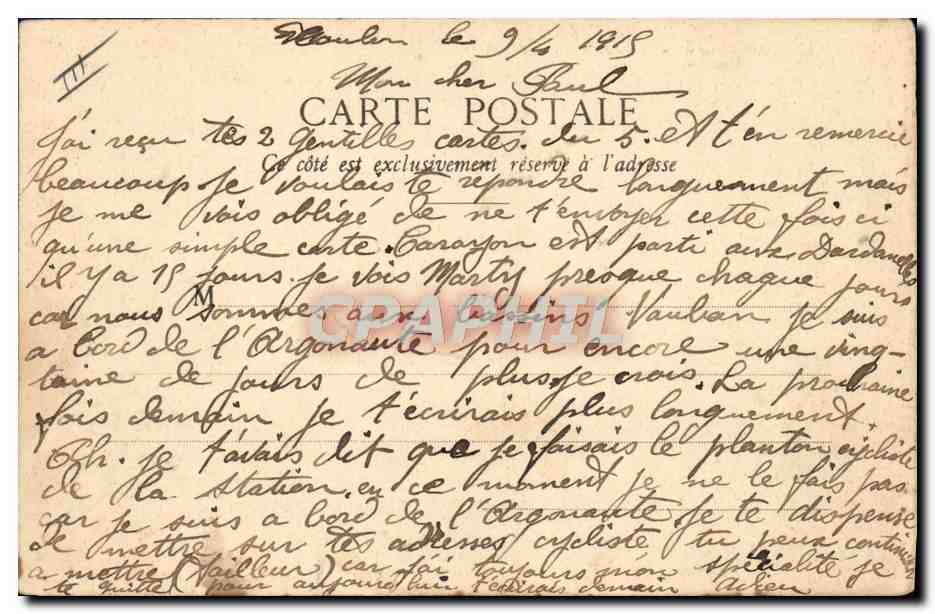 Toulon le 9/4 1915
Mon cher Paul
CARTE POSTALE
J'ai reçu tes 2 gentilles cartes. du 5. et t'en remercie
Ce côté est exclusivement réservé à l'adresse
beaucoup. Je voulais te repondre longuement mais
je me vois obligé de ne t'envoyer cette fois ci
qu'une simple carte. Carayon est parti aux Dardanelles
il y a 15 jours. je vois Marty presque chaque jours
M
car nous sommes aux bassins Vauban je suis
CPAPHIL
a bord de l'Argonaute pour encore une ving-
taine de jours de plus, je crois. La prochaine
fois demain je t'écrirais plus longuement.
Ah. je t'avais dit que je faisais le planton cycliste
de la station. en ce moment je ne le fais pas
car je suis a bord de l'Argonaute. Je te dispense
de mettre sur tes adresses cycliste tu peux continuer
a mettre (Tailleur) car j'ai toujours mon spécialité je
te quitte pour aujourd'hui t'écrirais demain Adieu
III